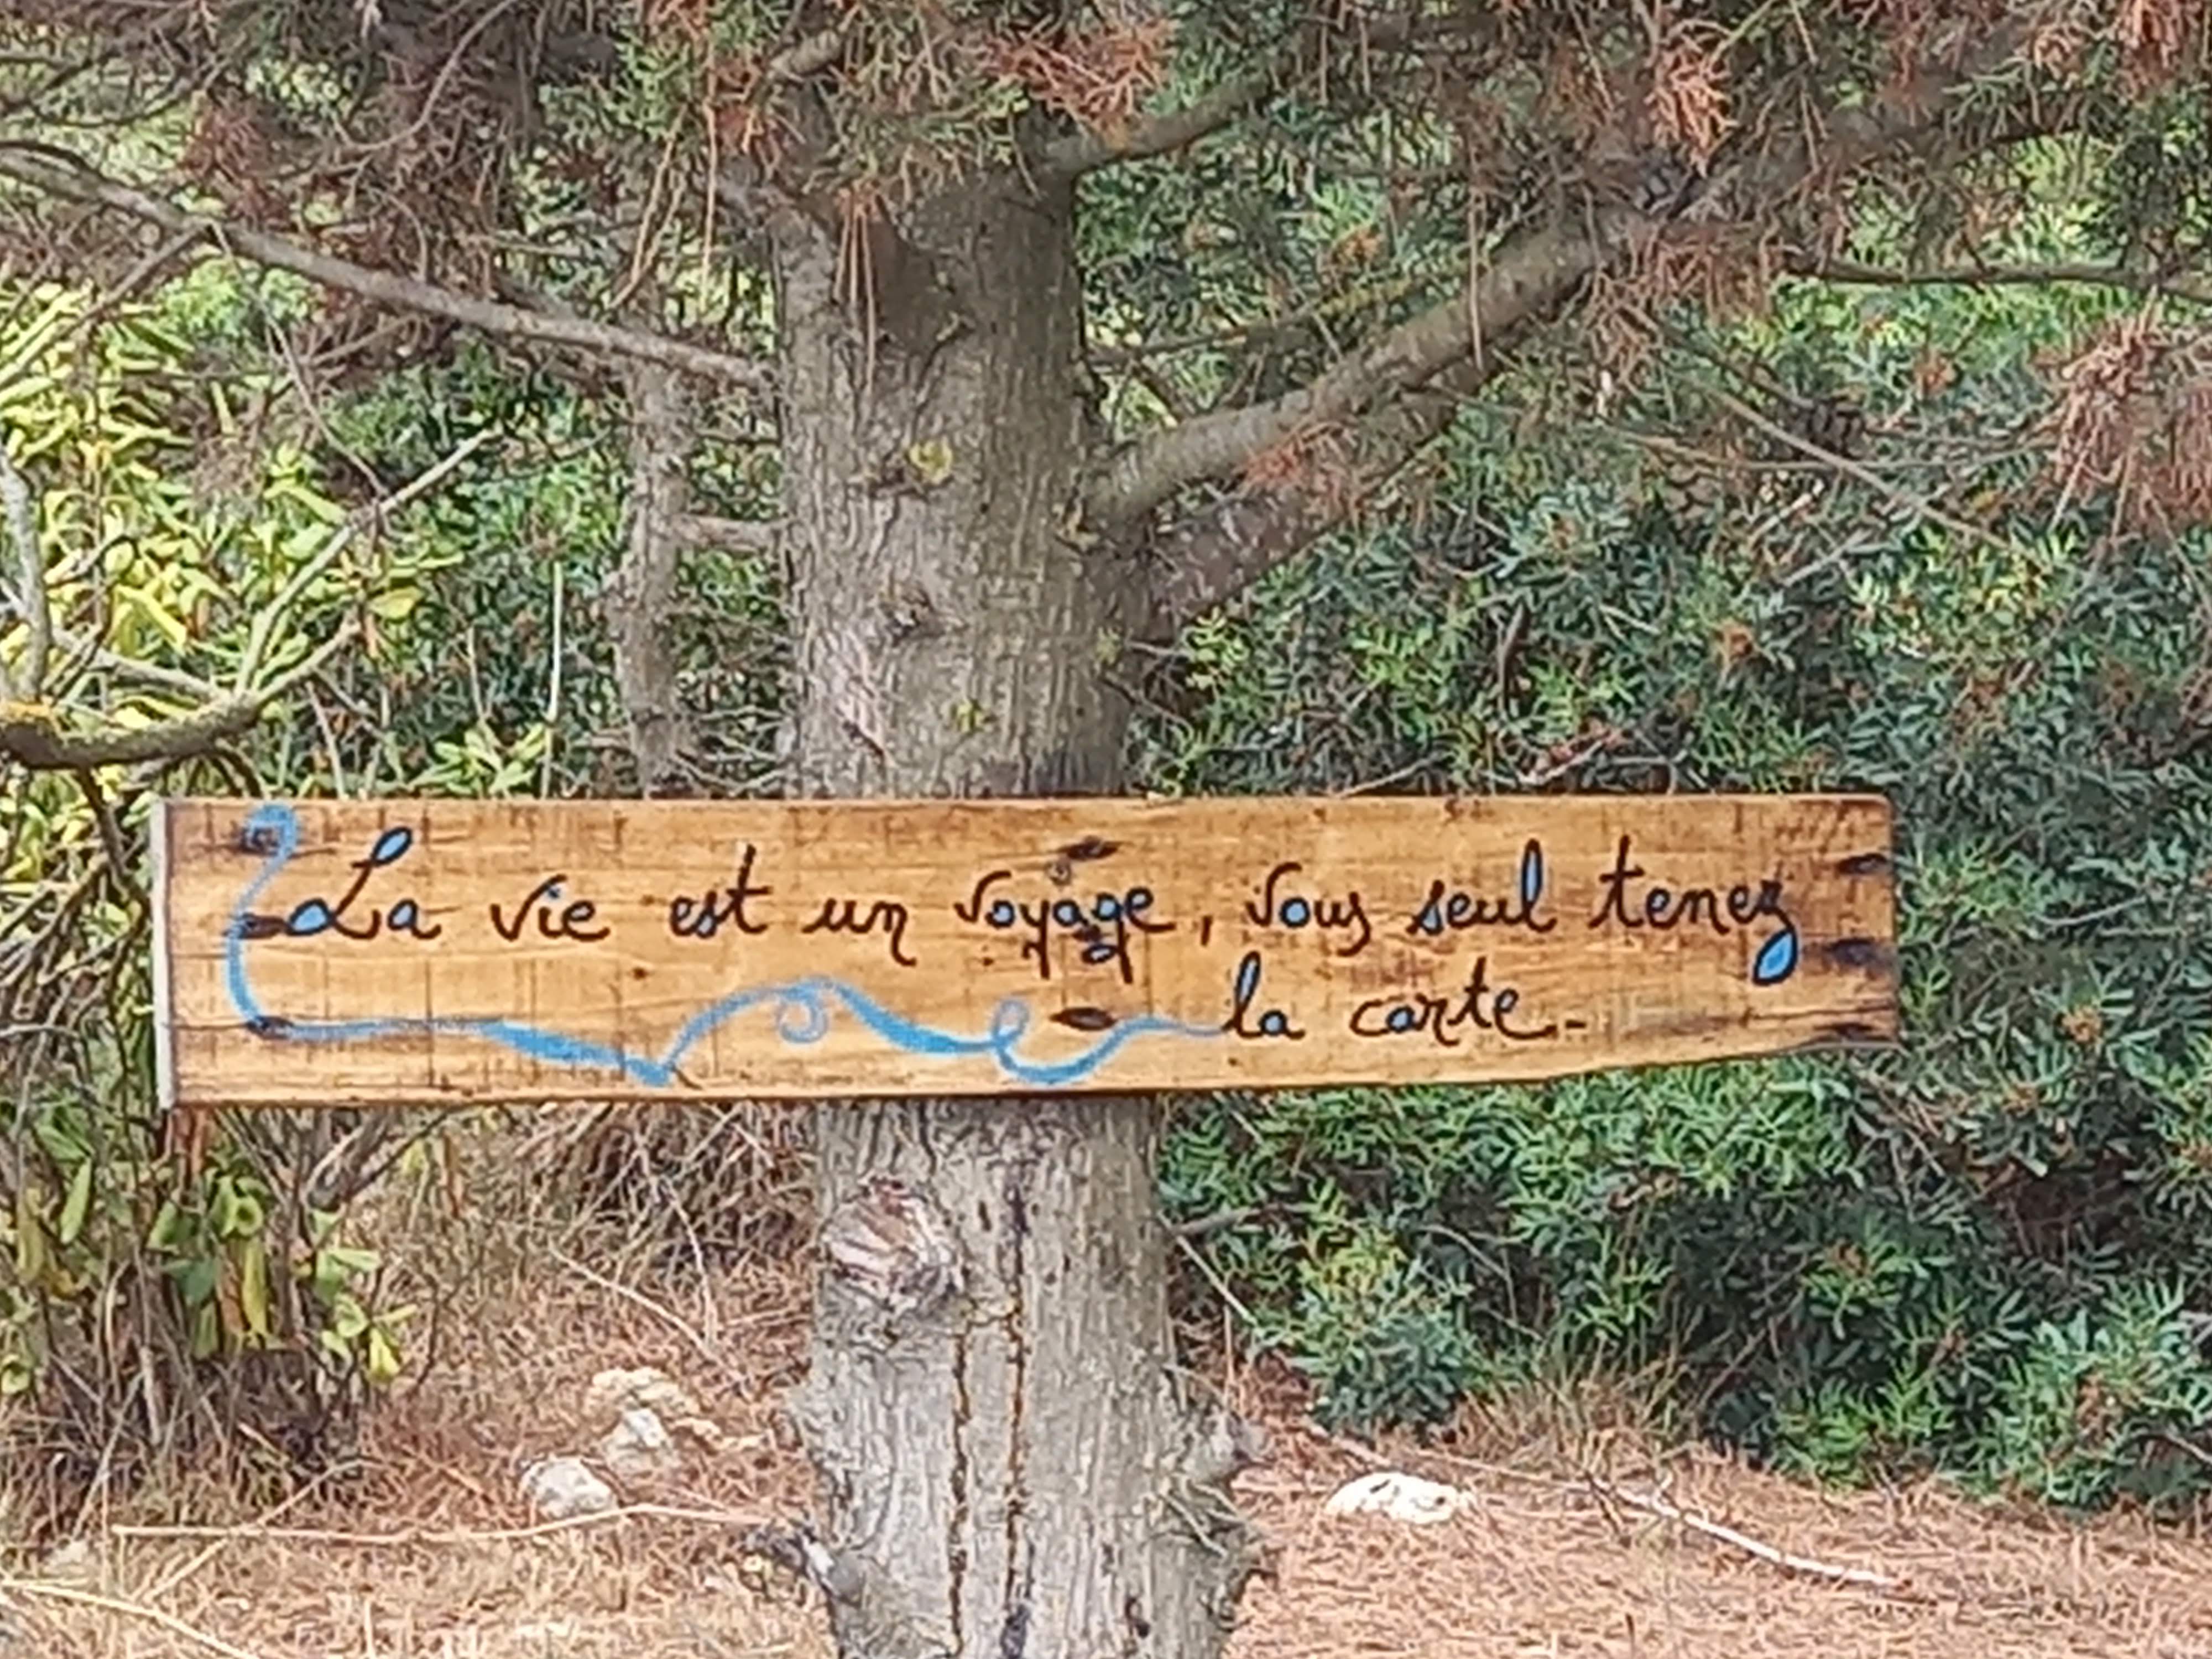 La vie est un voyage, vous seul tenez
la carte.